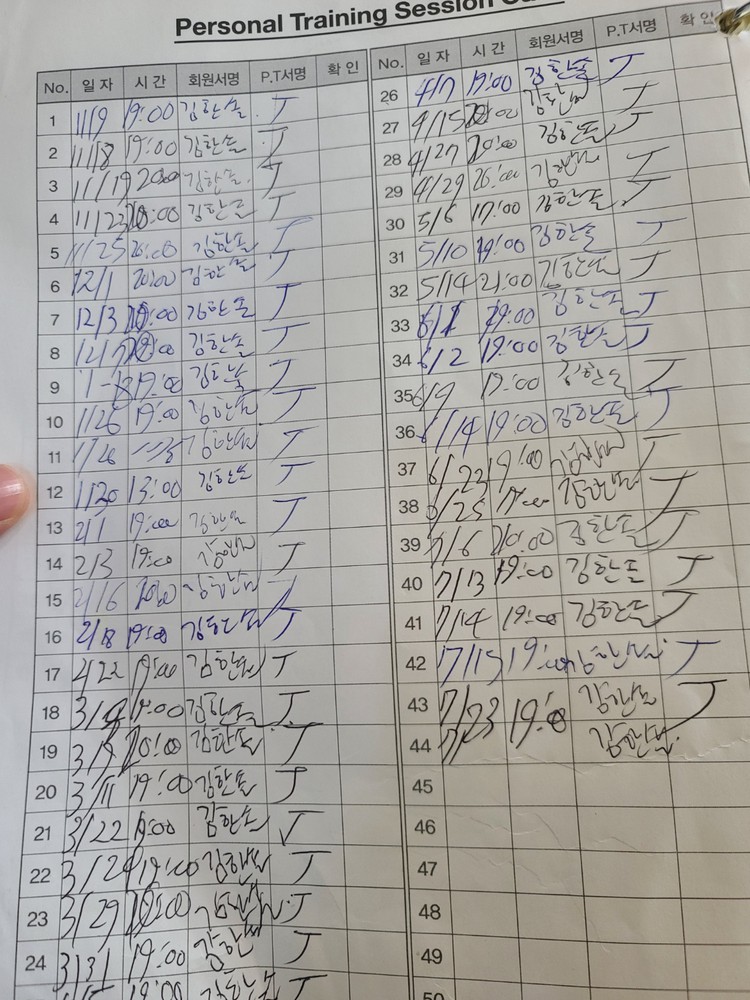 Personal Training Session
No. 일 자 시 간 회원서명 P.T서명 확 인
1 11/9 19:00 김한솔 J
2 11/18 19:00 김한솔 J
3 11/19 2000 김한솔 J
4 11/23 :00 김한솔 J
5 11/25 김한솔 J
6 12/1 2000 김한솔 J
7 12/3 :00 김한솔 J
8 12/ :00 김한솔 J
9 19:00 김한솔 J
10 1/26 19:00 김한솔 J
11 1/26 김한솔 J
12 13:00 김한솔 J
13 2/1 19:00 김한솔 J
14 2/3 19:00 김한솔 J
15 2/16 김한솔 J
16 2/18 19:00 김한솔 J
17 19:00 김한솔 J
18 김한솔 J
19 20:00 김한솔 J
20 3/11 19:00 김한솔 J
21 3/22 19:00 김한솔 J
22 19:00 김한솔 J
23 3/29 김한솔 J
24 3/31 19:00 김한솔 J
19:00 김한솔 J
일 자 시 간 회원서명 P.T서명 확 인
26 4/7 19:00 김한솔 J
27 4/15 김한솔 J
28 4/27 20:00 김한솔 J
29 4/29 김한솔 J
30 5/6 17:00 김한솔 J
31 5/10 19:00 김한솔 J
32 5/14 21:00 김한솔 J
33 19:00 김한솔 J
34 6/2 19:00 김한솔 J
35 6/9 김한솔 J
36 6/14 19:00 김한솔 J
37 6/22 19:00 김한솔 J
38 6/25 김한솔 J
39 7/6 김한솔 J
40 7/13 19:00 김한솔 J
41 7/14 19:00 김한솔 J
42 7/15 19:00 김한솔 J
43 7/23 19:00 김한솔 J
44 7/ 김한솔
45
46
47
48
49
50